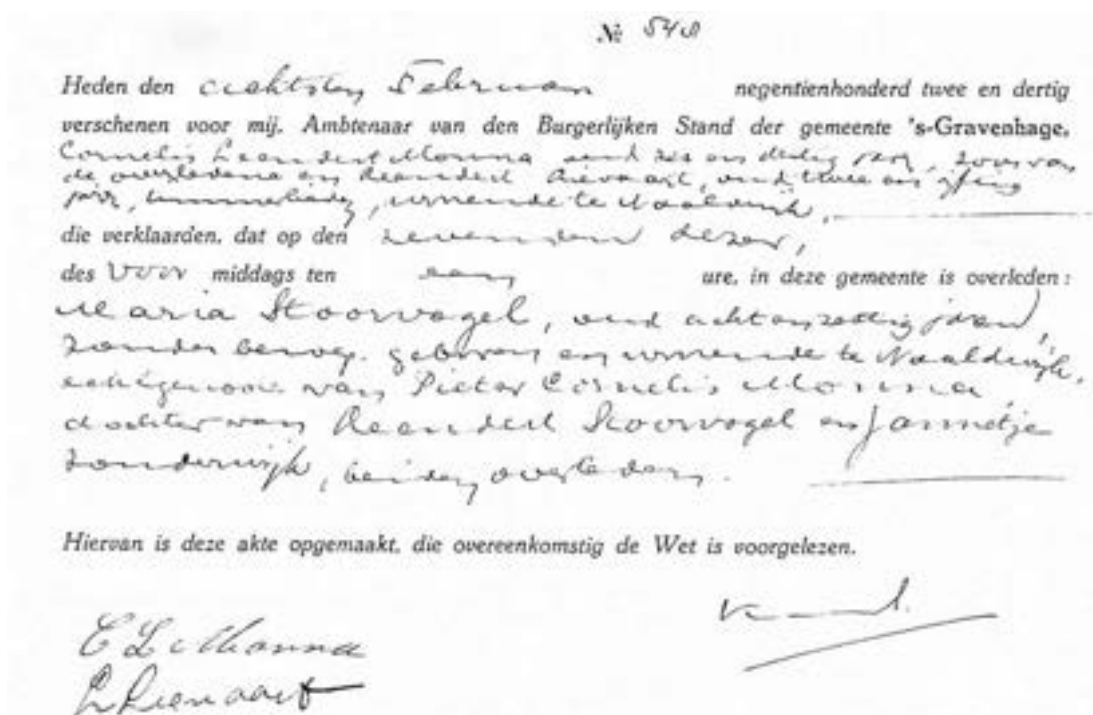 № 548
Heden den achtsten Februari negentienhonderd twee en dertig
verschenen voor mij, Ambtenaar van den Burgerlijken Stand der gemeente 's-Gravenhage,
Cornelis Leendert Monna oud zes en dertig jaar, zoon van
de overledene en Leendert oud twee en vijftig
jaar, timmerlieden, wonende te Naaldwijk,
die verklaarden, dat op den zevenden dezer,
des voor middags ten een ure, in deze gemeente is overleden:
Maria Stoorvogel, oud acht en zestig jaar,
zonder beroep, geboren en wonende te Naaldwijk,
echtgenoote van Pieter Cornelis Monna,
dochter van Leendert Stoorvogel en Jannetje
Zonderwijk, beiden overleden.
Hiervan is deze akte opgemaakt, die overeenkomstig de Wet is voorgelezen.
C L Monna